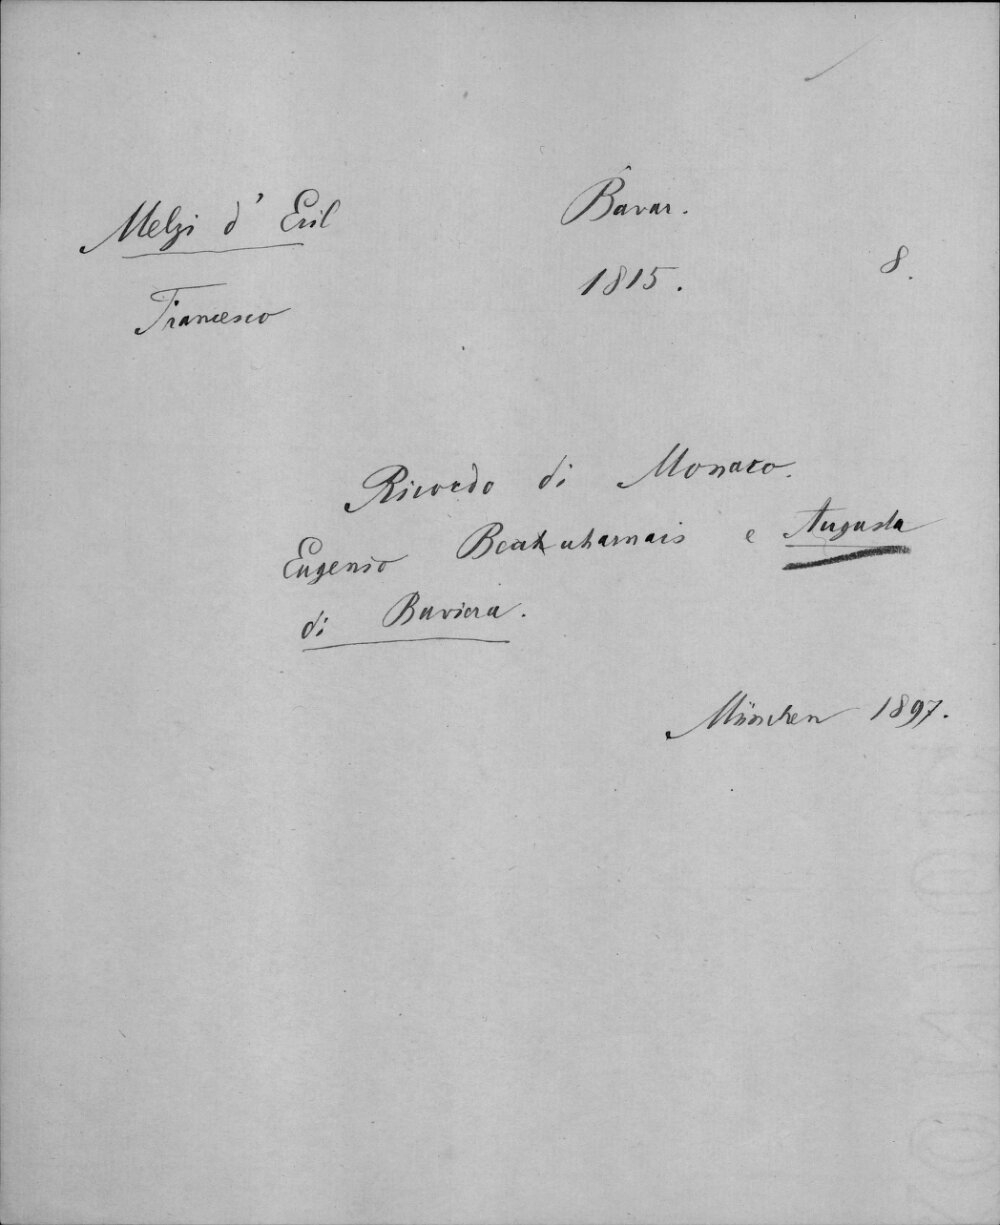 Melzi d' Eril
Bavar.
1815.
8.
Francesco
Ricordo di Monaco.
Eugenio Beauharnais e Augusta
di Baviera.
München 1897.